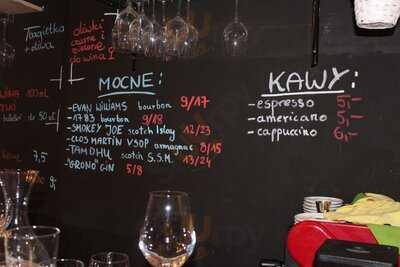 Bagietka
+ oliwa
oliwki
czarne i
zielone
do wina!
100ml
do 50ml
7,5
9,-
MOCNE:
-EVAN WILLIAMS bourbon 9/17
-1783 bourbon 9/18
-SMOKEY JOE scotch Islay 12/23
-CLOS MARTIN VSOP armagnac 8/15
-TAMDHU scotch S.S.M. 13/24
-"GRONO" GIN 5/8
KAWY:
-espresso 5,-
-americano 5,-
-cappuccino 6,-